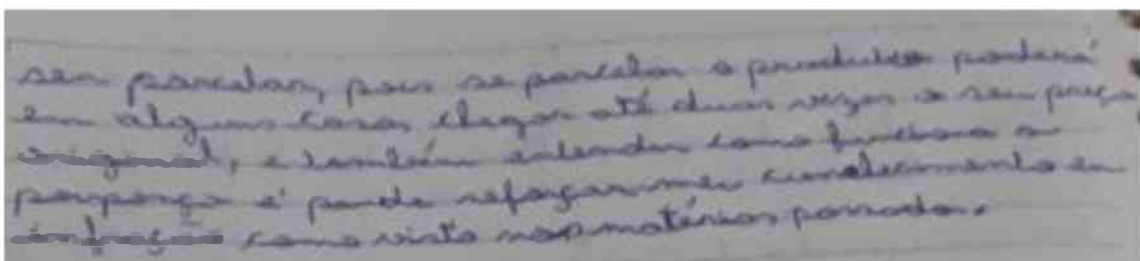 sem parcelar, pois se parcelar o produto poderá
em alguns casos chegar até duas vezes o seu preço
original, e também entender como funciona a
poupança e pude reforçar meu conhecimento em
inflação como visto nas matérias passadas.